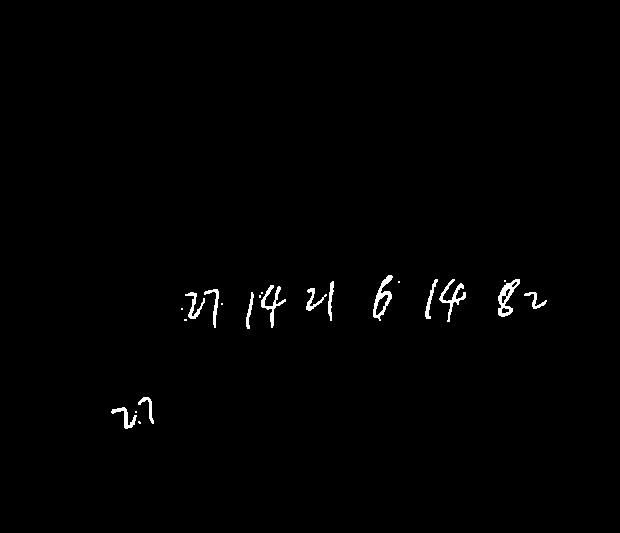 27 14 21 6 14 82
27